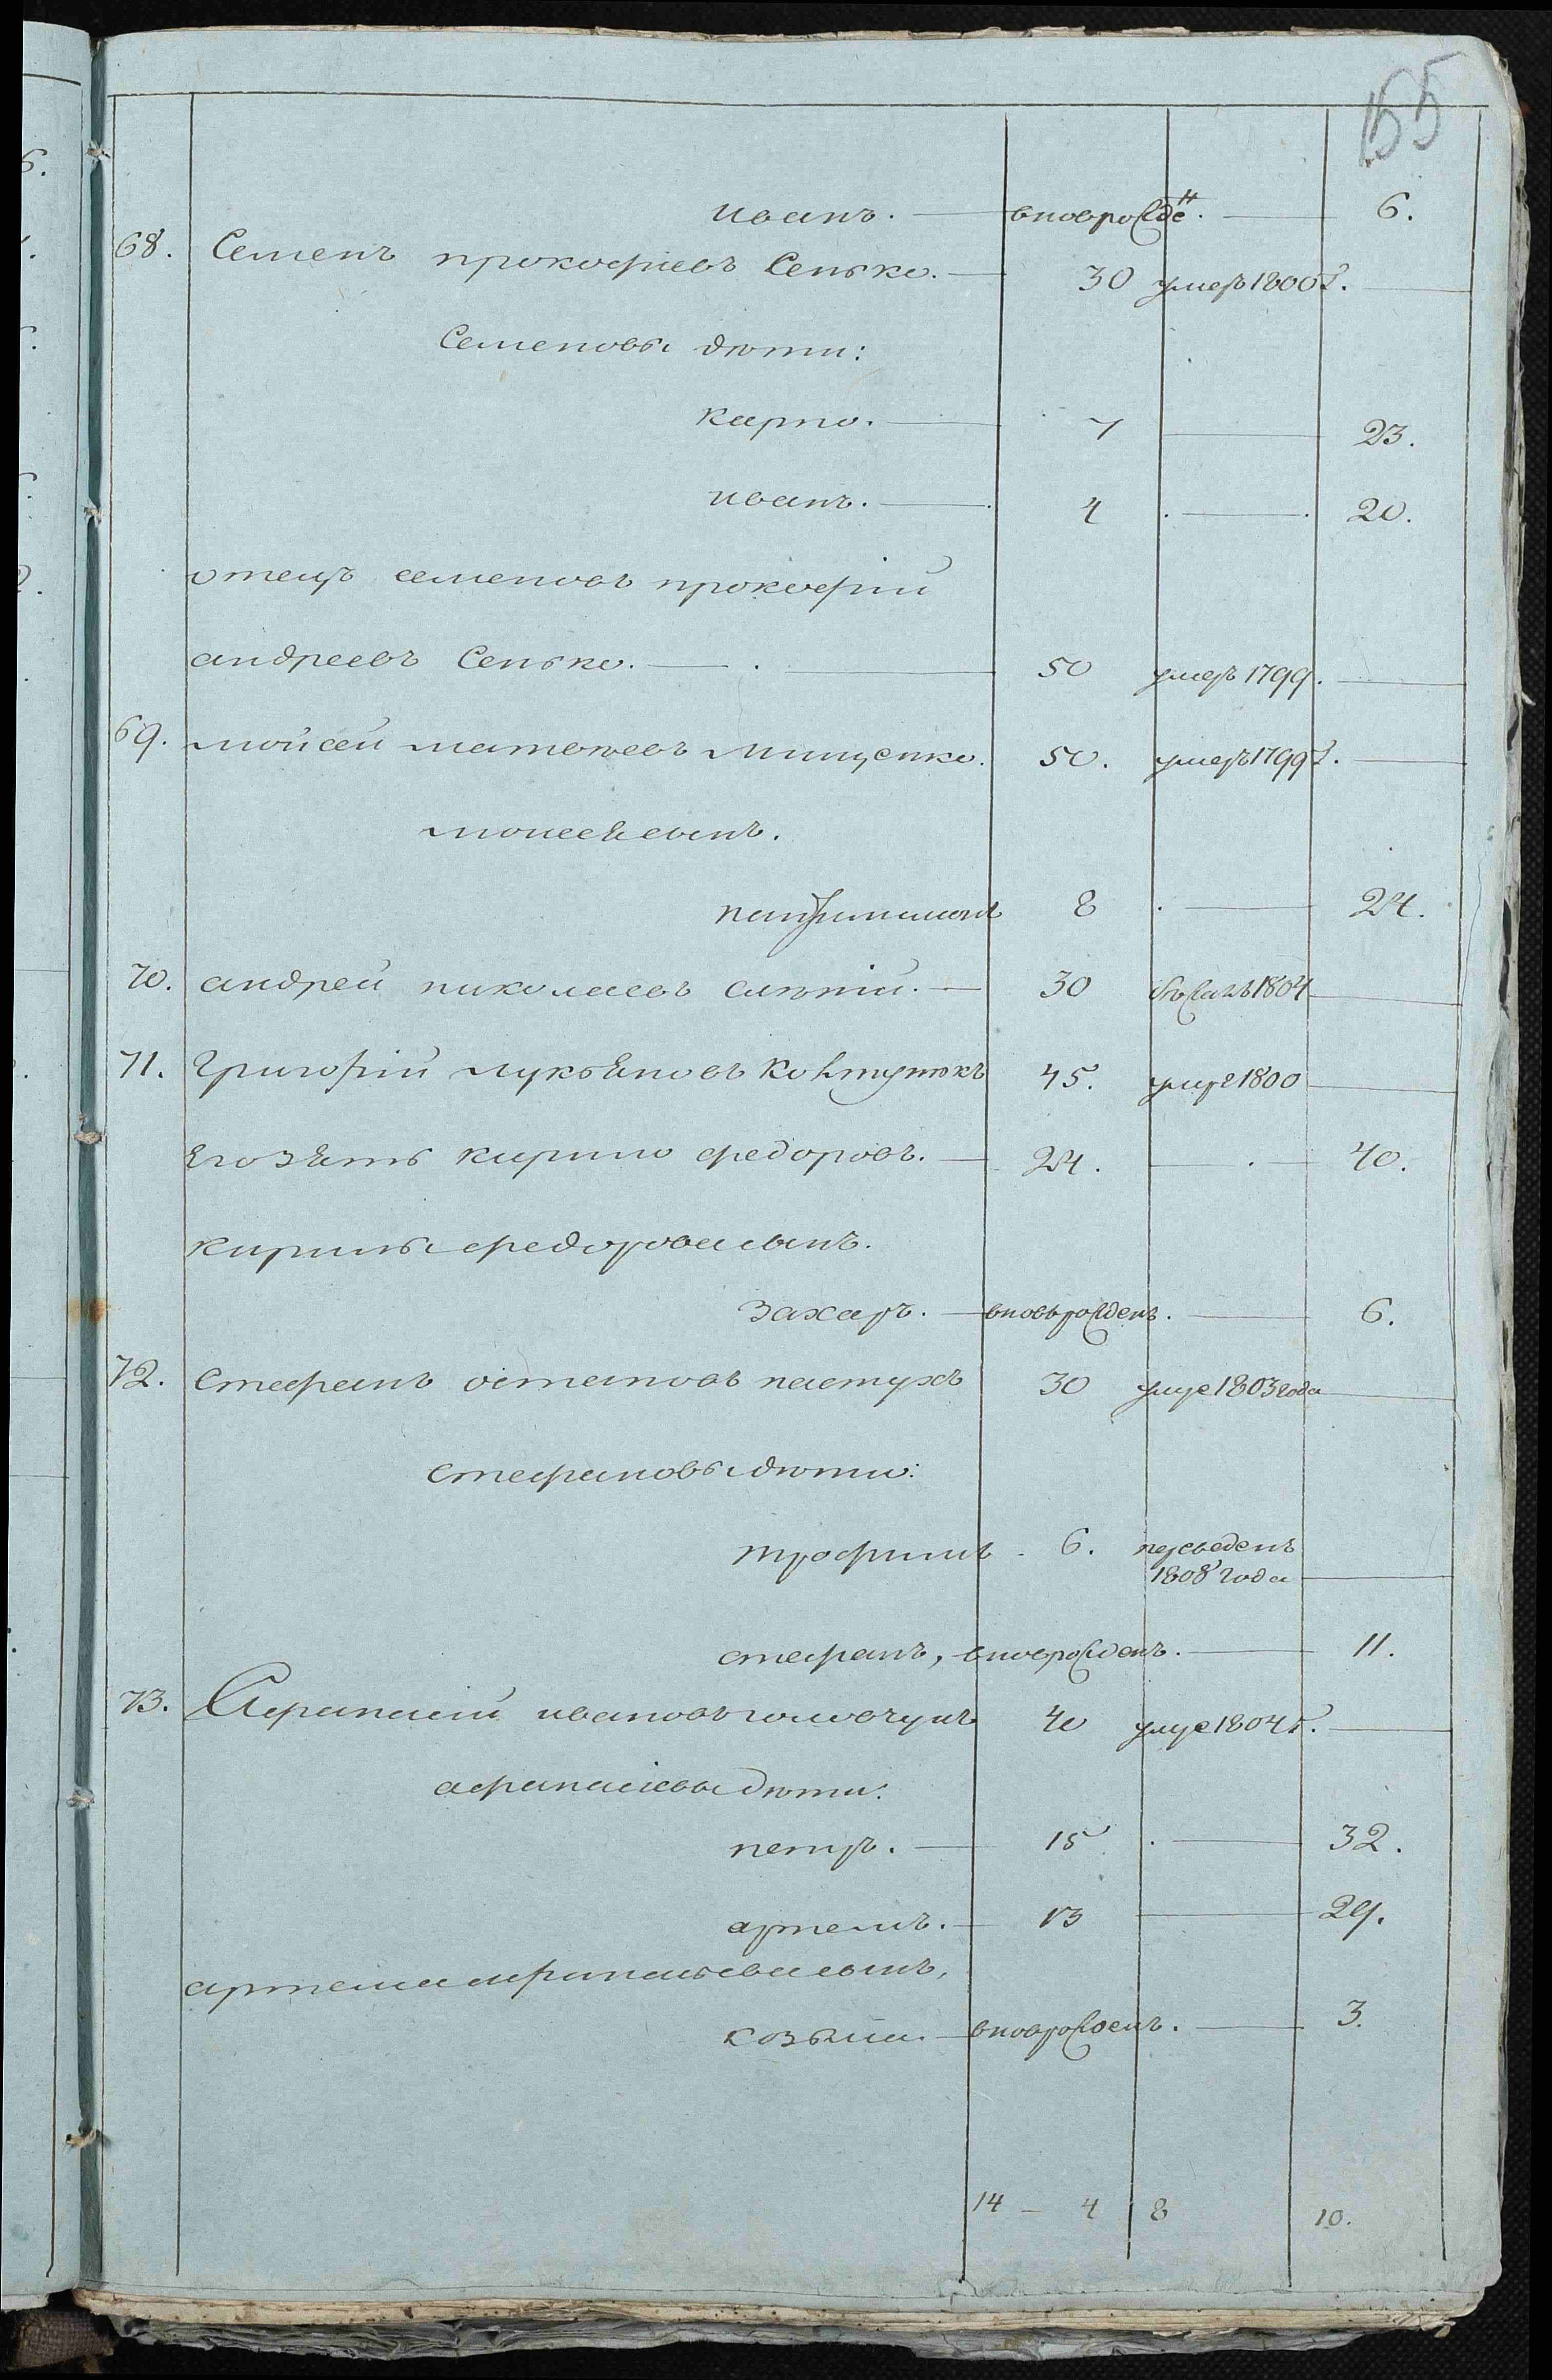 155
иванъ. вноврожден. 6.
68. Семенъ прокофіевъ Сенько. 30 умеръ 1800г.
Семеновы дѣти:
карпо. 7 23.
иванъ. 4 20.
отецъ семеновъ прокофій
андреевъ Сенько. 50 умеръ 1799.
69. мойсей матвѣевъ Мищенко. 50. умеръ 1799г.
моисея сынъ.
8 24.
70. андрей николаевъ 30 бежалъ 1804
71. григорій лукьяновъ Ковтунюкъ 45. умре 1800
его зять кирило федоровъ. 24. 40.
кирилы федорова сынъ.
захаръ. вновьрожденъ. 6.
72. стефанъ остаповъ пастухъ 30 умре 1803 года
стефановы дѣти:
трофимъ 6. переведенъ
1808 года
стефанъ, вноврожденъ. 11.
73. Афанасій ивановъ головчукъ 40 умре 1804г.
афанасіевы дѣти:
петръ. 15 32.
артемъ. 13 29.
артема афанасьева сынъ,
козьма. вноврожденъ. 3.
14 – 4 8 10.